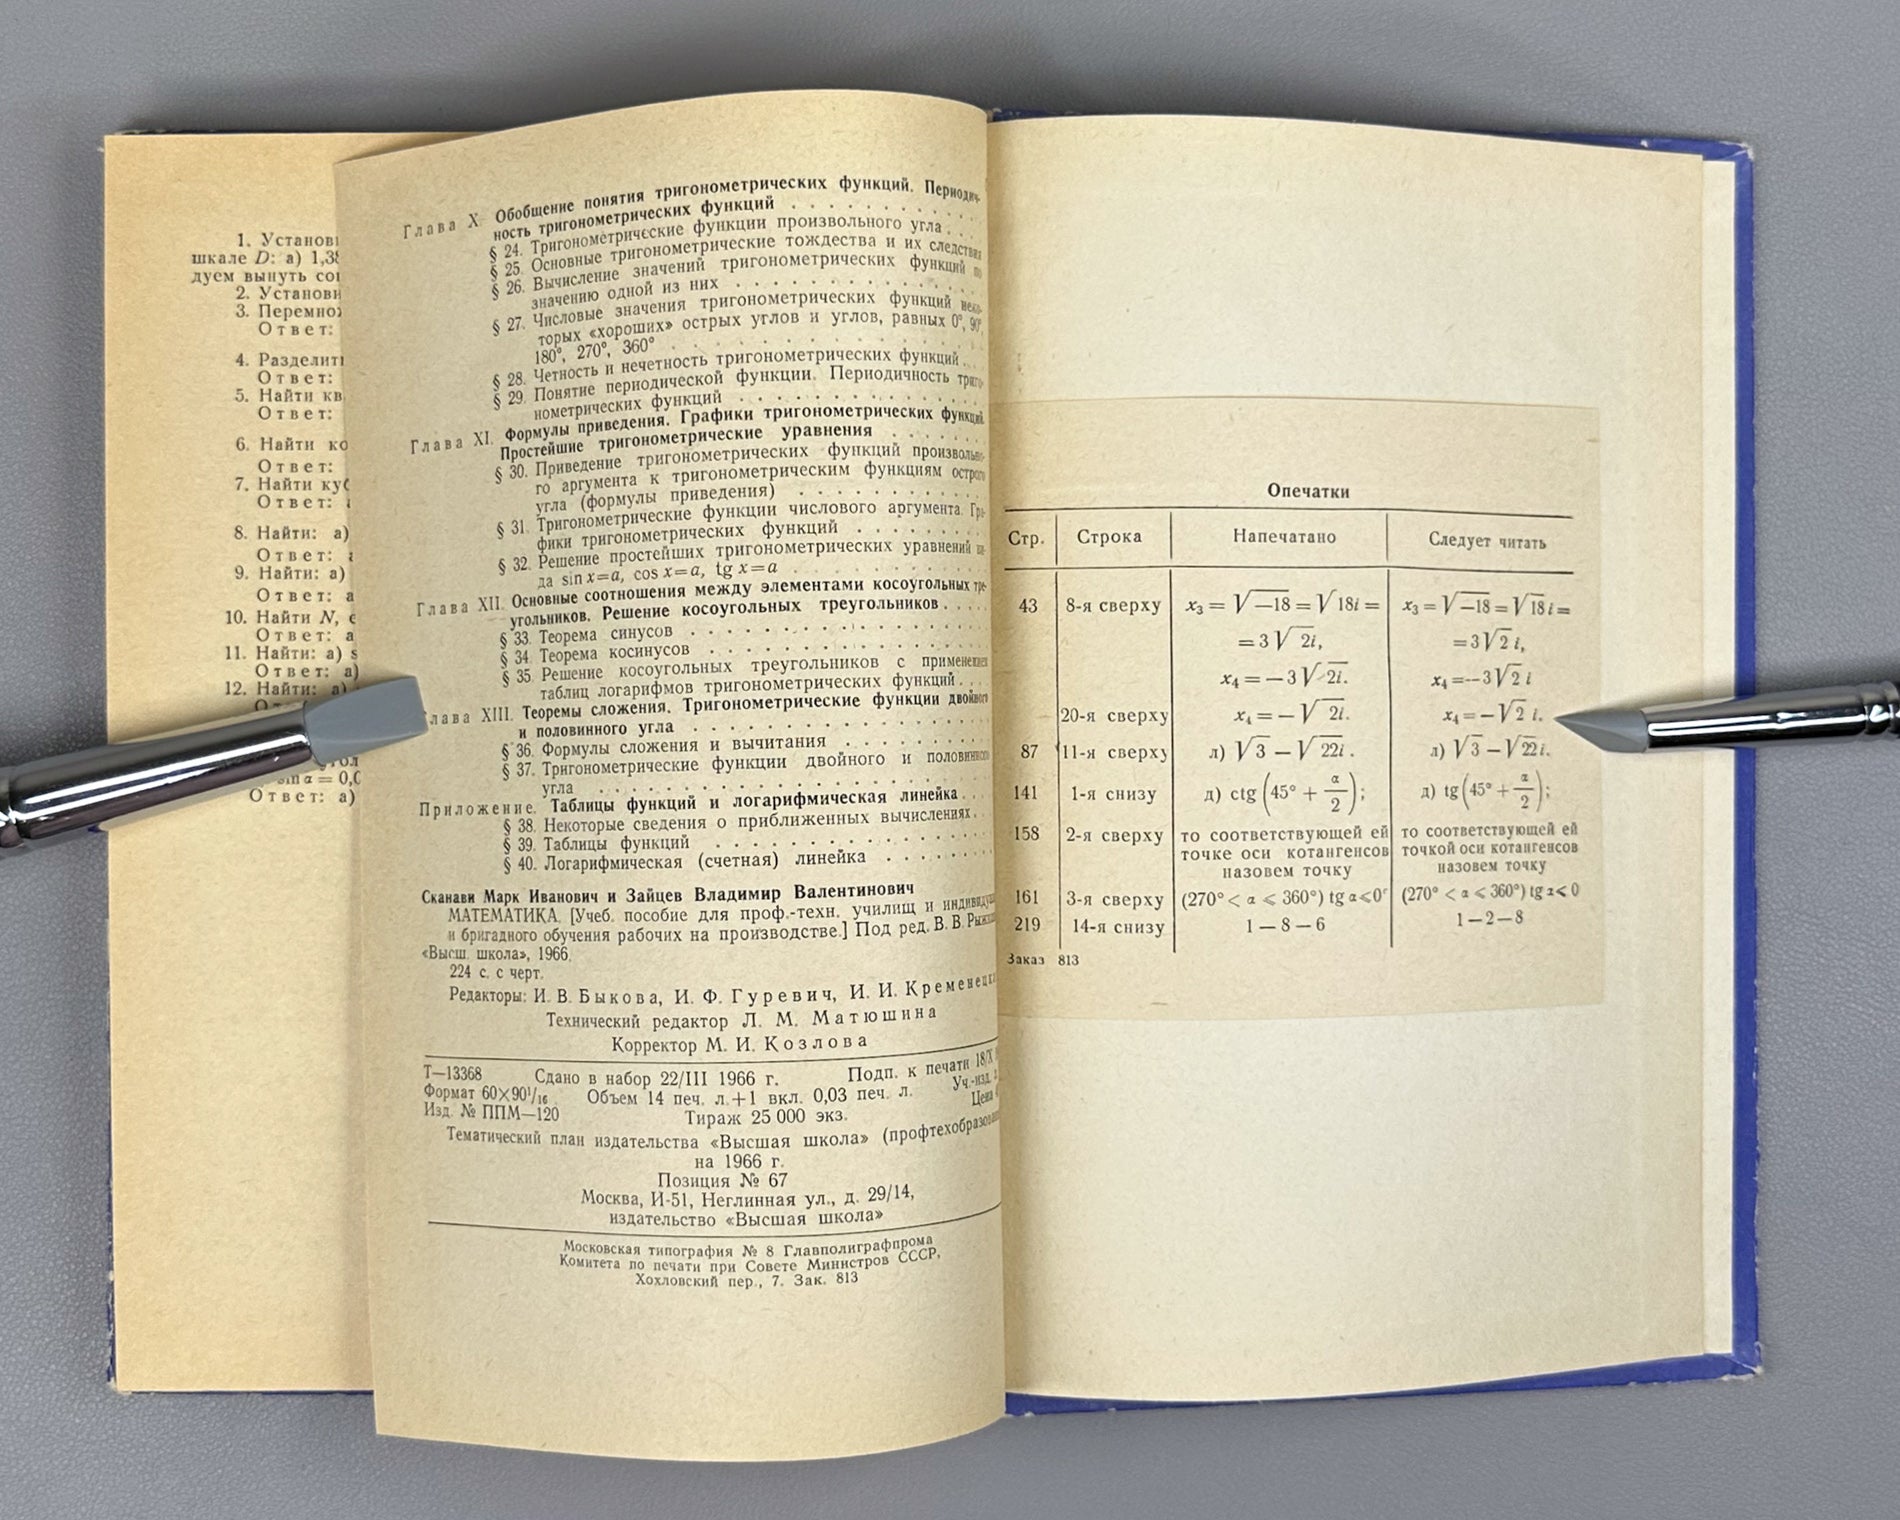 1. Установ
шкале D: а) 1,38
дуем вынуть
2. Установи
3. Перемно
Ответ:
4. Разделит
Ответ:
5. Найти кв
Ответ:
6. Найти ко
Ответ:
7. Найти куб
Ответ:
8. Найти: а)
Ответ:
9. Найти: а)
Ответ: а
10. Найти N, е
Ответ: а
11. Найти: а) s
Ответ: а)
12. Найти: а)
sin α = 0,0
Ответ: а)
Глава X. Обобщение понятия тригонометрических функций. Периодич-
ность тригонометрических функций
§ 24. Тригонометрические функции произвольного угла
§ 25. Основные тригонометрические тождества и их следствия
§ 26. Вычисление значений тригонометрических функций по
значению одной из них
§ 27. Числовые значения тригонометрических функций неко-
торых «хороших» острых углов и углов, равных 0°, 90°,
180°, 270°, 360°
§ 28. Четность и нечетность тригонометрических функций
§ 29. Понятие периодической функции. Периодичность триго-
нометрических функций
Глава XI. Формулы приведения. Графики тригонометрических функций.
Простейшие тригонометрические уравнения
§ 30. Приведение тригонометрических функций произвольно-
го аргумента к тригонометрическим функциям острого
угла (формулы приведения)
§ 31. Тригонометрические функции числового аргумента. Гра-
фики тригонометрических функций
§ 32. Решение простейших тригонометрических уравнений ви-
да sin x=a, cos x=a, tg x=a
Глава XII. Основные соотношения между элементами косоугольных тре-
угольников. Решение косоугольных треугольников
§ 33. Теорема синусов
§ 34. Теорема косинусов
§ 35. Решение косоугольных треугольников с применением
таблиц логарифмов тригонометрических функций
лава XIII. Теоремы сложения. Тригонометрические функции двойного
и половинного угла
§ 36. Формулы сложения и вычитания
§ 37. Тригонометрические функции двойного и половинного
угла
Приложение. Таблицы функций и логарифмическая линейка
§ 38. Некоторые сведения о приближенных вычислениях
§ 39. Таблицы функций
§ 40. Логарифмическая (счетная) линейка
Сканави Марк Иванович и Зайцев Владимир Валентинович
МАТЕМАТИКА. [Учеб. пособие для проф.-техн. училищ и индивидуа
и бригадного обучения рабочих на производстве.] Под ред. В. В. Рыжк
«Высш. школа», 1966.
224 с. с черт.
Редакторы: И. В. Быкова, И. Ф. Гуревич, И. И. Кременецк
Технический редактор Л. М. Матюшина
Корректор М. И. Козлова
Т—13368 Сдано в набор 22/III 1966 г. Подп. к печати 18/X
Формат 60×90¹/₁₆ Объем 14 печ. л.+1 вкл. 0,03 печ. л. Уч.-изд.
Изд. № ППМ—120 Тираж 25 000 экз. Цена
Тематический план издательства «Высшая школа» (профтехобразова
на 1966 г.
Позиция № 67
Москва, И-51, Неглинная ул., д. 29/14,
издательство «Высшая школа»
Московская типография № 8 Главполиграфпрома
Комитета по печати при Совете Министров СССР,
Хохловский пер., 7. Зак. 813
Опечатки
Стр. Строка Напечатано Следует читать
43 8-я сверху x₃ = √−18 = √ 18i = x₃ = √−18 = √18 i =
= 3√ 2i, = 3√2 i,
x₄ = −3√ 2i. x₄ = −3√2 i
20-я сверху x₄ = −√ 2i. x₄ = −√2 i.
87 11-я сверху л) √3 − √22i. л) √3 − √22 i.
141 1-я снизу д) ctg (45° + α/2); д) tg (45° + α/2);
158 2-я сверху то соответствующей ей то соответствующей ей
точке оси котангенсов точкой оси котангенсов
назовем точку назовем точку
161 3-я сверху (270° < α ⩽ 360°) tg α⩽0° (270° < α ⩽ 360°) tg α⩽ 0
219 14-я снизу 1 — 8 — 6 1 — 2 — 8
Заказ 813